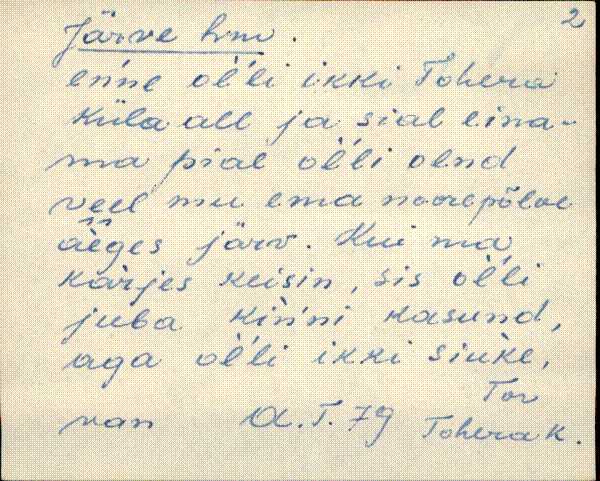 2
Järve hm.
en'ne ol'l'i ikki Tohera
küla all ja sial eina-
ma pial ol'l'i olnd
veel mu ema noorepõlve
aeges järv. Kui ma
karjes keisin, sis ol'l'i
juba kin'ni kasund,
aga ol'l'i ikki siuke,
Tor
van A.T. 79 Tohera k.